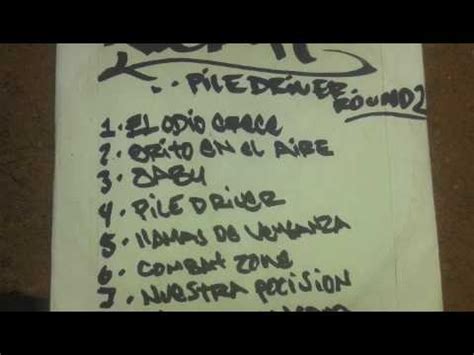 ..PILEDRIVER.
ROUND2
1. EL ODIO CRECE
2. GRITO EN EL AIRE
3. SABU
4. PILE DRIVER
5. LLAMAS DE VENGANZA
6. COMBAT ZONE
7. NUESTRA POCISION